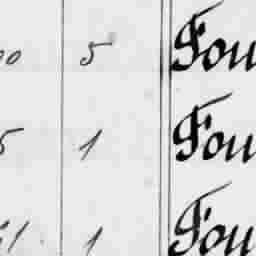 5 Fou
5 1 Fou
1 1 Fou